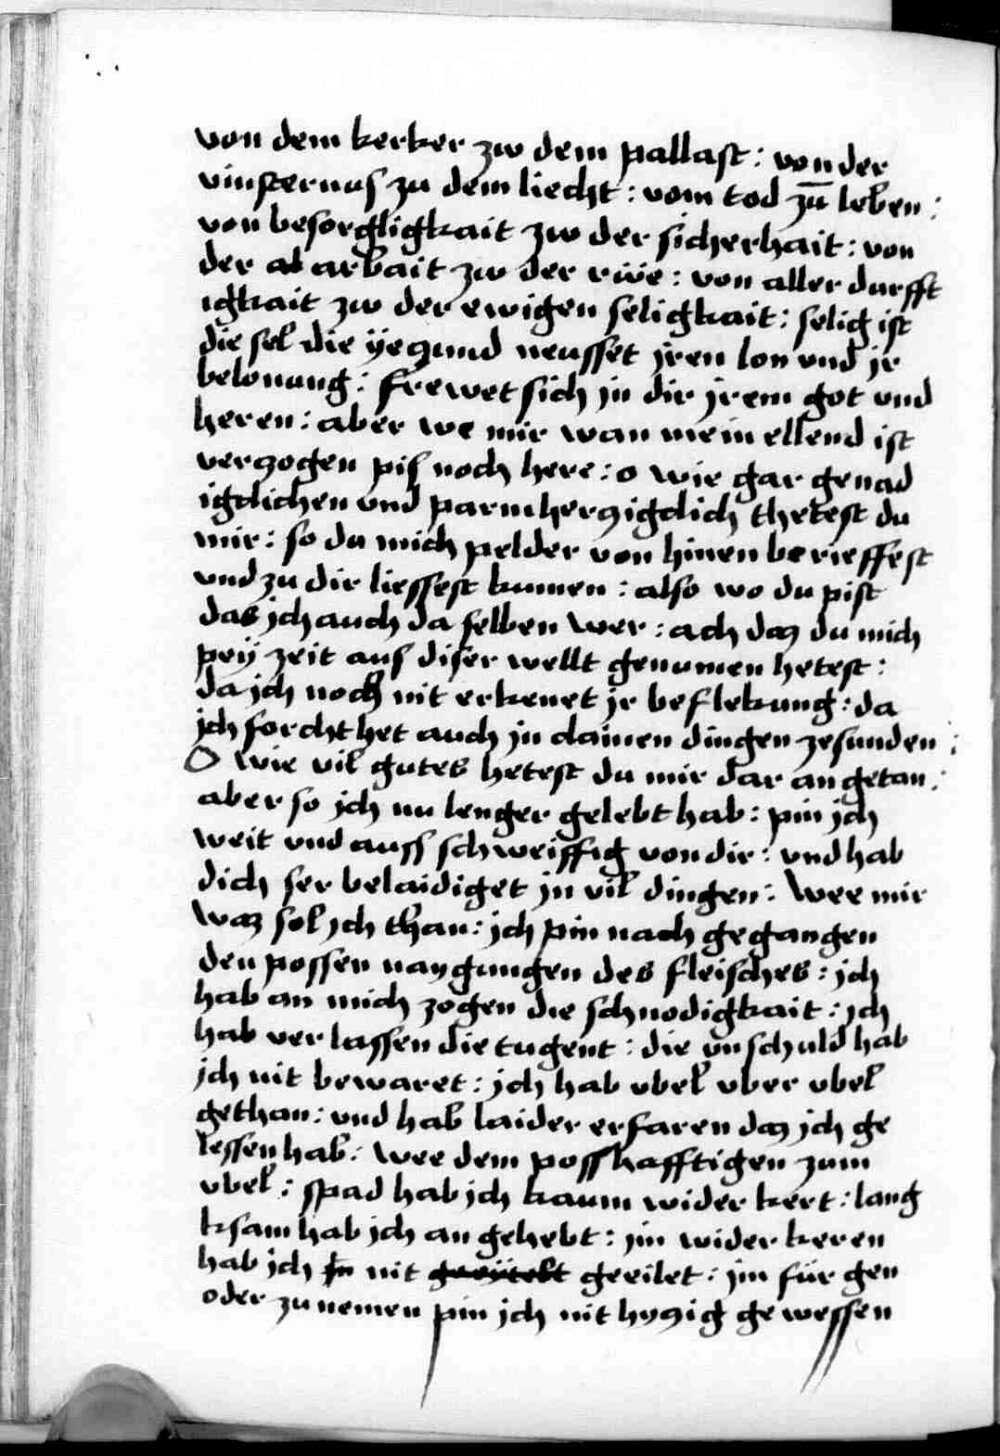 von dem kerker zw dem pallast : von der
vinsternus zu dem liecht : vom tod zū leben :
von besorgligkait zw der sicherhait : von
der al arbait zw der rüe : von aller durfft
igkait zw der ewigen seligkait : selig ist
die sel die ÿeczund neusset jren lon und jr
belonung : frewet sich jn dir jrem got und
heren : aber we mir wan mein ellend ist
verczogen pis noch here : o wie gar genad
igclichen und parmherczigclich thetest du
mir : so du mich pelder von hinen berieffest
und zu dir liessest kumen : also wo du pist
das jch auch da selben wer : ach daz du mich
peÿ zeit aus diser wellt genumen hetest :
da jch noch nit erkenet jr beflekung : da
jch forcht het auch jn clainen dingen zesunden :
O wie vil gutes hetest du mir dar an getan :
aber so jch nu lenger gelebt hab : pin jch
weit und auss schweiffig von dir : und hab
dich ser belaidiget jn vil dingen : Wee mir
Waz sol jch thun : jch pin nach gegangen
den possen naygungen des fleisches : jch
hab an mich zogen die schnodigkait : jch
hab verlassen die tugent : die unschuld hab
jch nit bewaret : jch hab vbel vber vbel
gethan : und hab laider erfaren daz jch ge
lessen hab : Wee dem posshafftigen zum
vbel : spad hab jch kaum wider kert : lang
ksam hab jch an gehebt : jm wider keren
hab jch nit geeilet : jm für gen
oder zu nemen pin jch nit hyczig gewessen